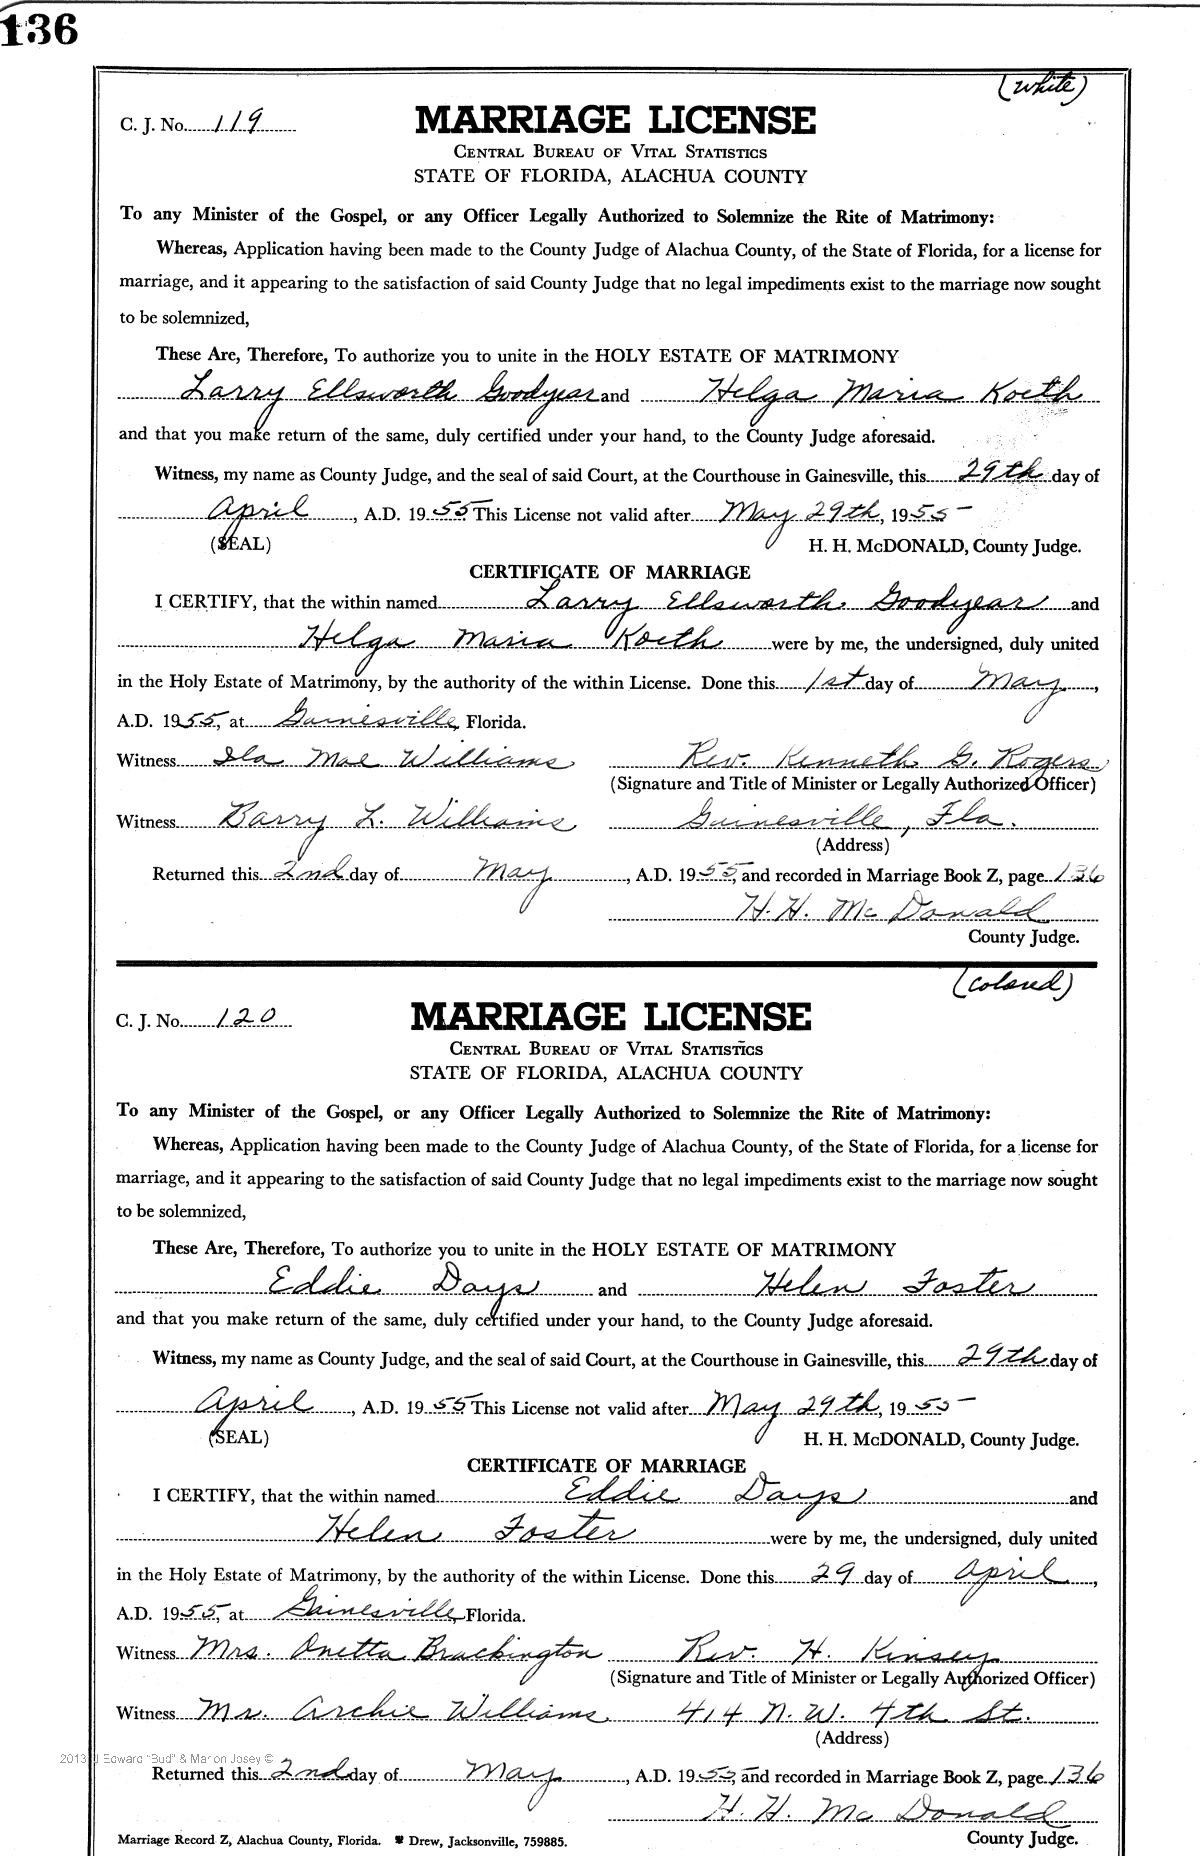 136
(white)
C. J. No. 119
MARRIAGE LICENSE
CENTRAL BUREAU OF VITAL STATISTICS
STATE OF FLORIDA, ALACHUA COUNTY
To any Minister of the Gospel, or any Officer Legally Authorized to Solemnize the Rite of Matrimony:
Whereas, Application having been made to the County Judge of Alachua County, of the State of Florida, for a license for
marriage, and it appearing to the satisfaction of said County Judge that no legal impediments exist to the marriage now sought
to be solemnized,
These Are, Therefore, To authorize you to unite in the HOLY ESTATE OF MATRIMONY
Larry Ellsworth Goodyear and Helga Maria Koeth
and that you make return of the same, duly certified under your hand, to the County Judge aforesaid.
Witness, my name as County Judge, and the seal of said Court, at the Courthouse in Gainesville, this 29th day of
April, A.D. 1955 This License not valid after May 29th, 1955
(SEAL) H. H. McDONALD, County Judge.
CERTIFICATE OF MARRIAGE
I CERTIFY, that the within named Larry Ellsworth Goodyear and
Helga Maria Koeth were by me, the undersigned, duly united
in the Holy Estate of Matrimony, by the authority of the within License. Done this 1st day of May,
A.D. 1955, at Gainesville, Florida.
Witness Ila Mae Williams Rev. Kenneth G. Rogers
(Signature and Title of Minister or Legally Authorized Officer)
Witness Barry L. Williams Gainesville, Fla.
(Address)
Returned this 2nd day of May, A.D. 1955, and recorded in Marriage Book Z, page 136
H. H. McDonald
County Judge.
(colored)
C. J. No. 120
MARRIAGE LICENSE
CENTRAL BUREAU OF VITAL STATISTICS
STATE OF FLORIDA, ALACHUA COUNTY
To any Minister of the Gospel, or any Officer Legally Authorized to Solemnize the Rite of Matrimony:
Whereas, Application having been made to the County Judge of Alachua County, of the State of Florida, for a license for
marriage, and it appearing to the satisfaction of said County Judge that no legal impediments exist to the marriage now sought
to be solemnized,
These Are, Therefore, To authorize you to unite in the HOLY ESTATE OF MATRIMONY
Eddie Days and Helen Foster
and that you make return of the same, duly certified under your hand, to the County Judge aforesaid.
Witness, my name as County Judge, and the seal of said Court, at the Courthouse in Gainesville, this 29th day of
April, A.D. 1955 This License not valid after May 29th, 1955
(SEAL) H. H. McDONALD, County Judge.
CERTIFICATE OF MARRIAGE
I CERTIFY, that the within named Eddie Days and
Helen Foster were by me, the undersigned, duly united
in the Holy Estate of Matrimony, by the authority of the within License. Done this 29 day of April,
A.D. 1955, at Gainesville, Florida.
Witness Mrs. Onetta Brackington Rev. H. Kinsey
(Signature and Title of Minister or Legally Authorized Officer)
Witness Mr. Archie Williams 414 N. W. 4th St.
(Address)
2013 J Edward "Bud" & Marion Josey ©
Returned this 2nd day of May, A.D. 1955, and recorded in Marriage Book Z, page 136
H. H. McDonald
Marriage Record Z, Alachua County, Florida. Drew, Jacksonville, 759885. County Judge.